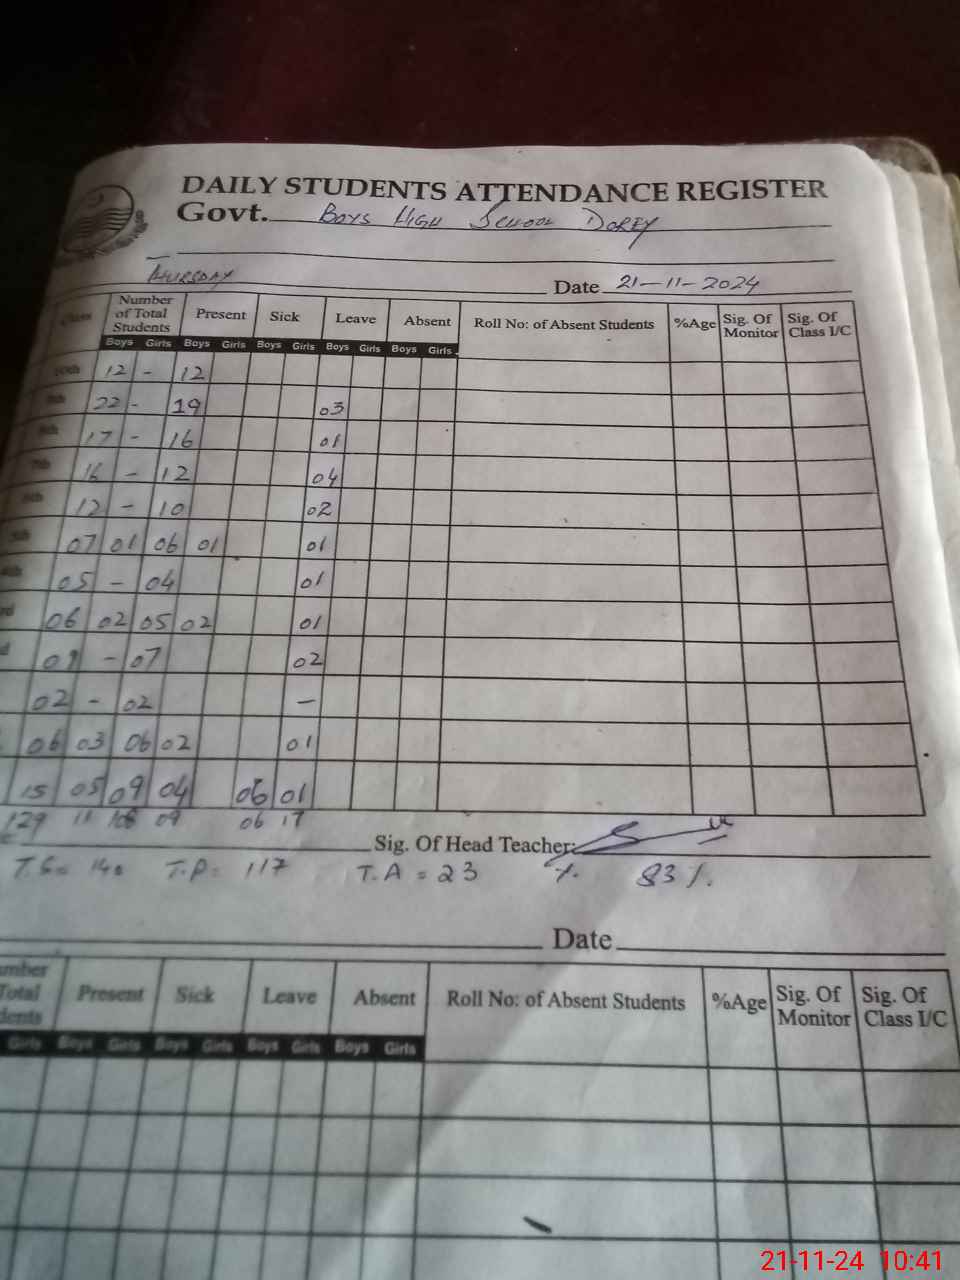 DAILY STUDENTS ATTENDANCE REGISTER
Govt. BOYS HIGH SCHOOL DOREY
THURSDAY Date 21-11-2024
Class Number of Total Students Present Sick Leave Absent Roll No: of Absent Students %Age Sig. Of Monitor Sig. Of Class I/C
Boys Girls Boys Girls Boys Girls Boys Girls Boys Girls
10th 12 - 12
9th 22 - 19 03
8th 17 - 16 01
7th 16 - 12 04
6th 12 - 10 02
5th 07 01 06 01 01
4th 05 - 04 01
rd 06 02 05 02 01
d 09 - 07 02
02 - 02 -
06 03 06 02 01
15 05 09 04 06 01
129 11 108 09 06 17
Sig. Of Head Teacher:
T.S= 140 T.P= 117 T.A = 23 % 83%
Date
umber Total dents Present Sick Leave Absent Roll No: of Absent Students %Age Sig. Of Monitor Sig. Of Class I/C
Girls Boys Girls Boys Girls Boys Girls Boys Girls
21-11-24 10:41